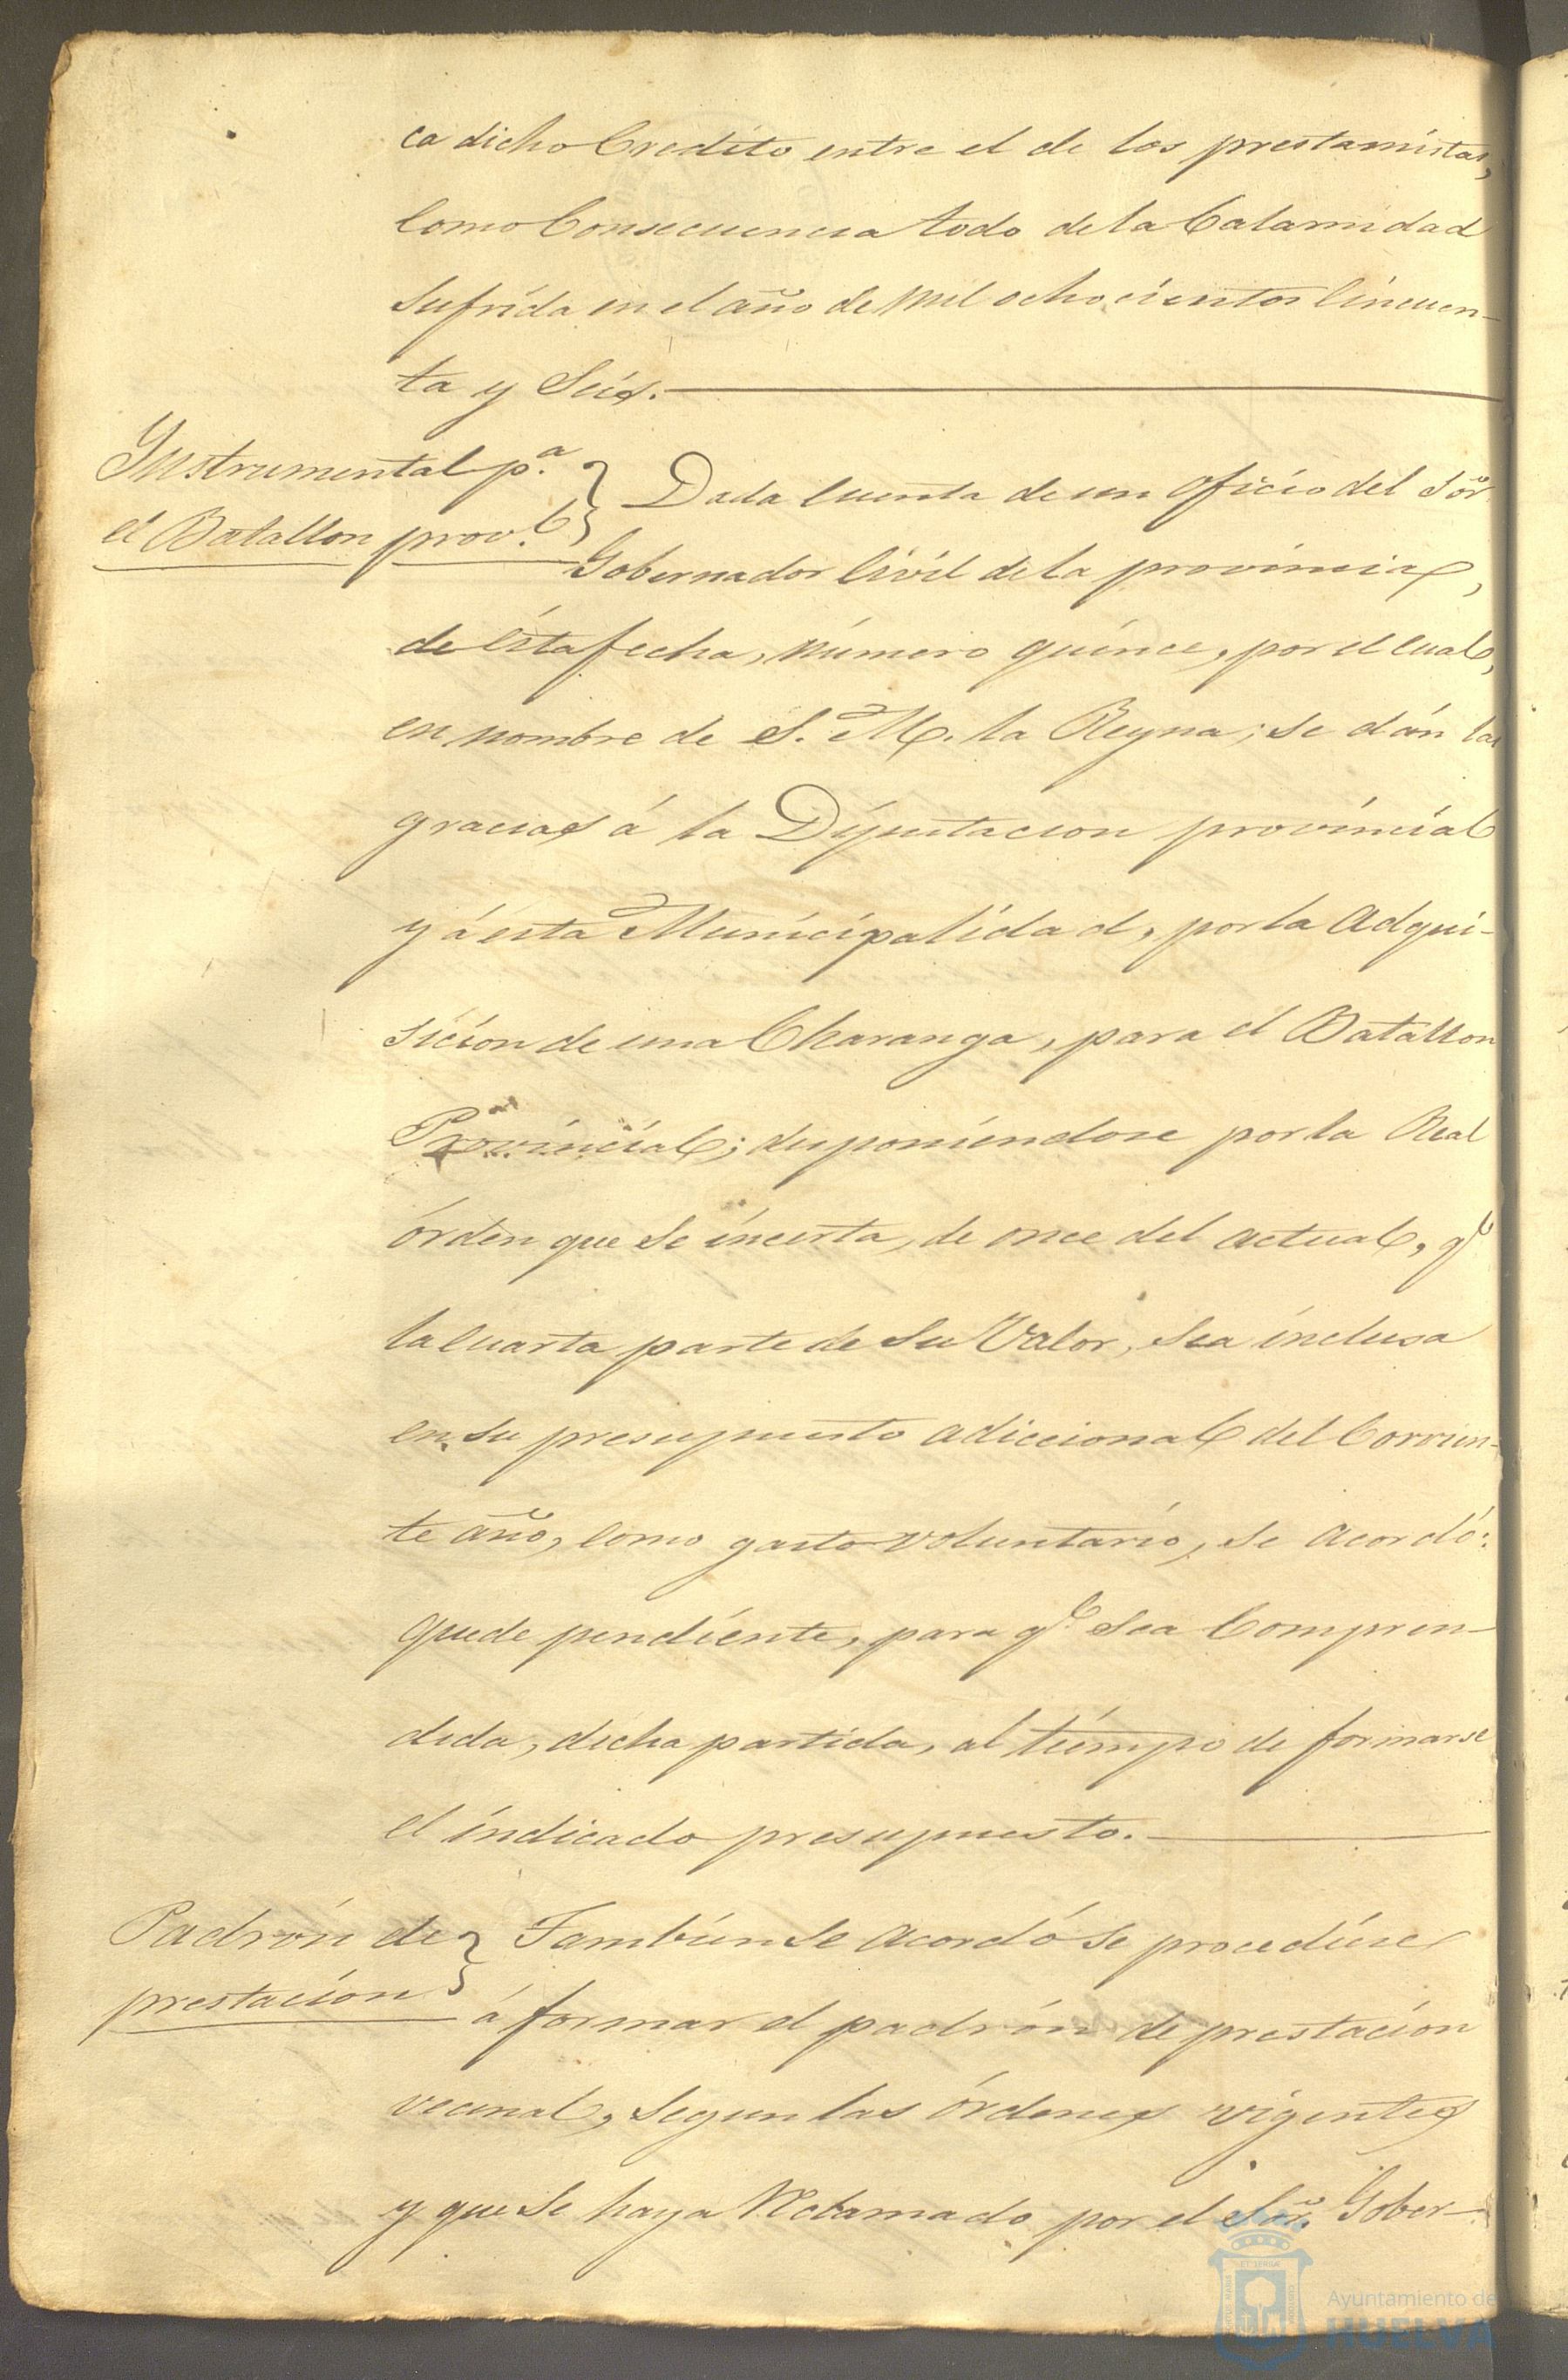 ca dicho Credito entre el de los prestamistas,
como Consecuencia todo de la Calamidad
sufrida en el año de mil ochocientos cincuen-
ta y Seis.
Ynstrumental p.ª
el Batallon prov.l
Dada cuenta de un oficio del Sõr
Gobernador Civil de la provincia,
de ésta fecha, número quince, por el cual,
en nombre de S. M. la Reyna; se dán las
gracias á la Diputacion provincial
y á esta Municipalidad, por la adqui-
sicion de una Charanga, para el Batallon
Provincial; disponiendose por la Real
órden que se incerta, de once del actual, q.e
la cuarta parte de su Valor, sea inclusa
en su presupuesto adiccional del Corrien-
te año, como gasto voluntario, se acordó:
quede pendiente, para q.e sea Compren-
dida, dicha partida, al tiempo de formarse
el indicado presupuesto.
Padrón de
prestacion
Tambien se acordó se procediese
á formar el padrón de prestacion
vecinal, segun las órdenes vigentes
y que se haya Reclamado por el Sõr. Gober-
Ayuntamiento de
HUELVA